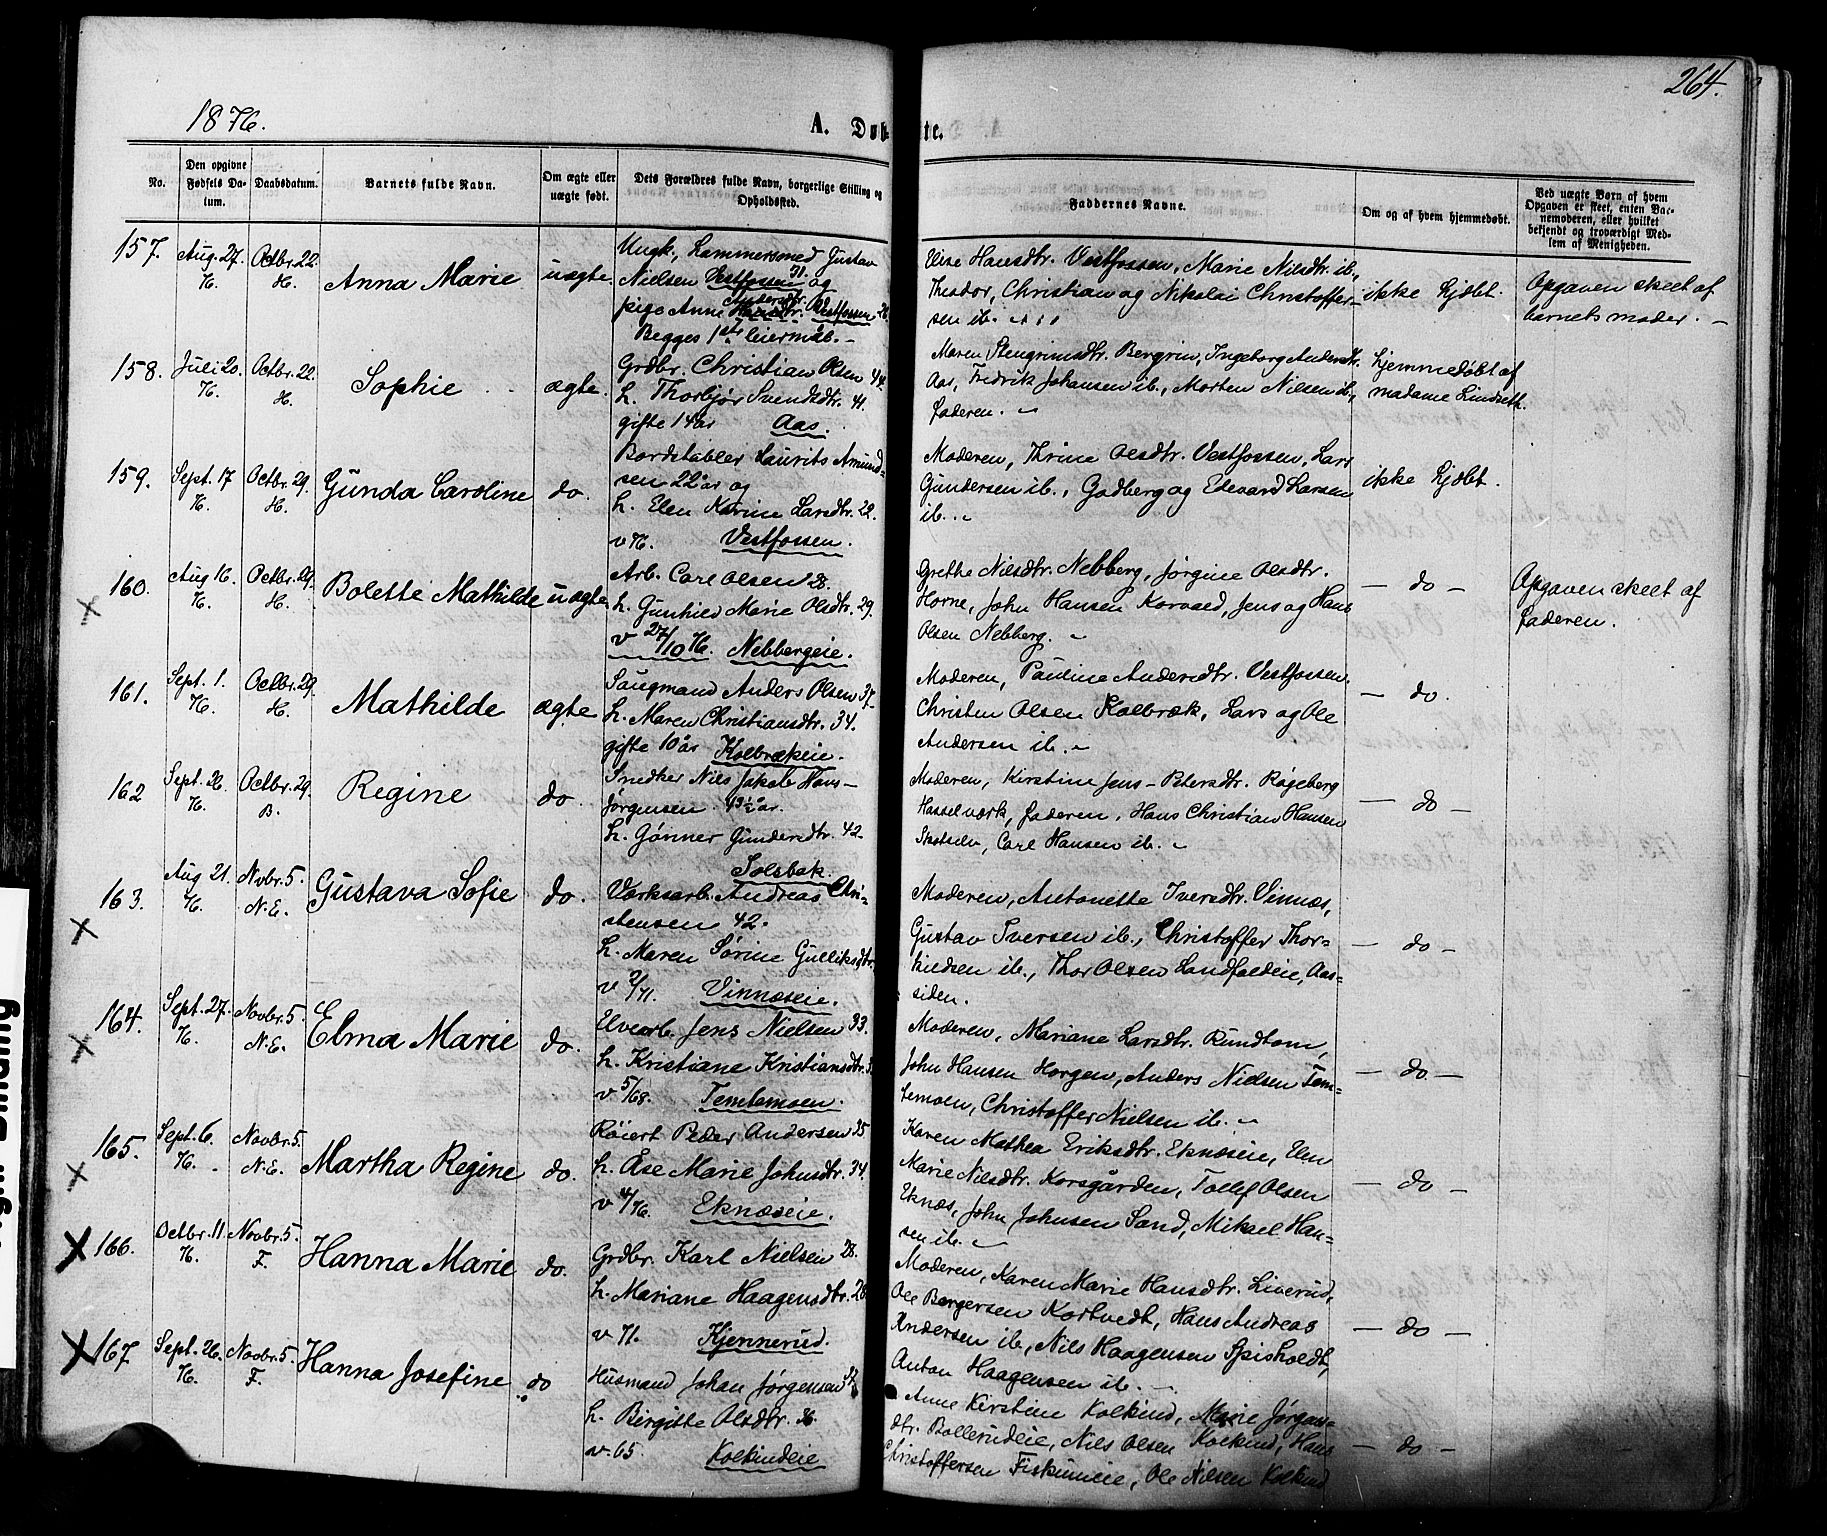 264.
1876.
A. Døbte.
No.
Den opgivne Fødsels Datum.
Daabsdatum.
Barnets fulde Navn.
Om ægte eller uægte født.
Dets Forældres fulde Navn, borgerlige Stilling og Opholdssted.
Faddernes Navne.
Om og af hvem hjemmedøbt.
Ved uægte Børn af hvem Opgaven er skeet, enten Barnemoderen, eller hvilket bekjendt og troværdigt Medlem af Menigheden.
157. Aug. 27. Octbr. 22. Anna Marie uægte.
H.
Ungk. Lammersmed Gustav
Nielsen Vestfossen 31. og
pige Anne Andersdtr. Vestfossen 26
Begges 1ste leiermål.
Elise Hansdtr. Vestfossen, Marie Nilsdtr. ib.,
Theodor, Christian og Nikolai Christoffer-
sen ib.
ikke hjdbt.
Opgaven skeet af
barnets moder.
158. Juli 20. Octbr. 22. Sophie ægte.
H.
Grdbr. Christian Olsen 44.
h. Thorbjør Svendsdtr. 41.
gifte 14 år Aas.
Maren Stengrimsdtr. Bergrin, Ingeborg Andersdtr.
Aas, Fredrik Johansen ib., Morten Nilsen ib.,
faderen.
hjemmedøbt af
madame Lindseth.
159. Sept. 17 Octbr. 29. Gunda Caroline do.
H.
Bordstabler Laurits Amund-
sen 22 år og
h. Elen Karine Larsdtr. 22.
v 76. Vestfossen.
Moderen, Thrine Olsdtr. Vestfossen, Lars
Gundersen ib., Gadberg og Edevard Larsen
ib.
ikke hjdbt.
160. Aug 16. Octbr. 29. Bolette Mathilde uægte.
H.
Arb. Carl Olsen 28.
h. Gunhild Marie Olsdtr. 29.
v 27/10 76. Nebbergeie.
Grethe Nilsdtr. Nebberg, Jørgine Olsdtr.
Horne, John Hansen Korvald, Jens og Hans
Olsen Nebberg.
— do —
Opgaven skeet af
faderen.
161. Sept. 1. Octbr. 29. Mathilde ægte.
H.
Saugmand Anders Olsen 37
h. Maren Christiansdtr. 34.
gifte 10 år Kolbrækeie.
Moderen, Pauline Andersdtr. Vestfossen,
Christen Olsen Kolbræk, Lars og Ole
Andersen ib.
— do.
162 Sept. 26. Octbr. 29. Regine do.
B.
Snedker Nils Jakob Hans-
Jørgensen 43½ år.
h. Gønner Gundersdtr. 42
Solsbak.
Moderen, Kirstine Jens-Petersdtr. Røgeberg
Hasselværk, faderen, Hans Christian Hansen
Skotselv, Carl Hansen ib.
— do —
163. Aug 21. Novbr. 5. Gustava Sofie do.
N.E.
Værksarb. Andreas Chri-
stensen 42.
h. Maren Sørine Gulliksdtr.
v 2/71. Vinnæseie.
Moderen, Antonette Iversdtr. Vinnæs,
Gustav Iversen ib., Christoffer Thor-
kildsen ib., Thor Olsen Landfaldeie, Aas-
siden.
— do —
164. Sept. 27. Novbr. 5. Elma Marie do.
N.E.
Elvearb. Jens Nielsen 33.
h. Kristiane Kristiansdtr.
v 5/68. Temtemoen.
Moderen, Mariane Larsdtr. Rundtom,
John Hansen Horgen, Anders Nielsen Tem-
temoen, Christoffer Nielsen ib.
— do. —
165. Sept. 6. Novbr. 5. Martha Regine do.
N.E.
Røiert Peder Andersen 35
h. Åse Marie Johnsdtr. 34.
v 4/76. Eknæseie.
Karen Mathea Eriksdtr. Eknæseie, Elen
Marie Nilsdtr. Korsgården, Tollef Olsen
Eknæs, John Johnsen Sand, Mikael Han-
sen ib.
— do —
166. Octbr. 11. Novbr. 5. Hanna Marie do.
F.
Grdbr. Karl Nielsen 28.
h. Mariane Haagensdtr. 28
v 71. Kjennerud.
Moderen, Karen Marie Hansdtr. Liverud,
Ole Børgersen Kortvedt, Hans Andreas
Andersen ib., Nils Haagensen Spisholdt,
Anton Haagensen ib.
— do —
167 Sept. 26. Novbr. 5. Hanna Josefine do
F.
Husmand Johan Jørgensen
h. Birgitte Olsdtr. 36.
v 65 Kolkindeie
Anne Kirstine Kolkind, Marie Jørgens-
dtr. Bollerudeie, Nils Olsen Kolkind, Hans
Christoffersen Fiskumeie, Ole Nilsen Kolkind
— do —